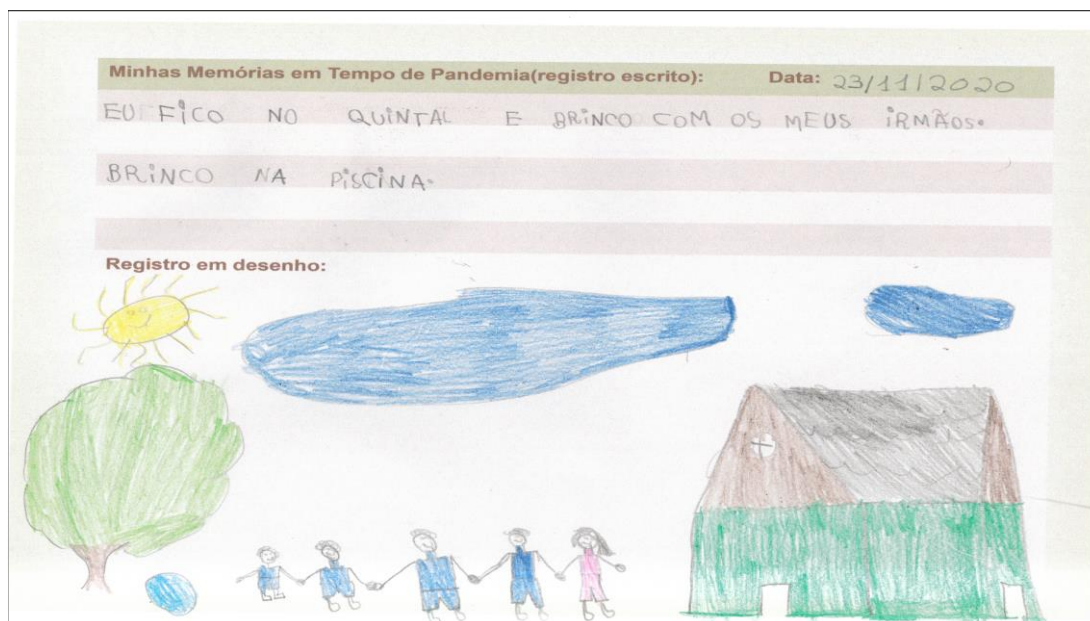 Minhas Memórias em Tempo de Pandemia(registro escrito): Data: 23/11/2020
EU FICO NO QUINTAL E BRINCO COM OS MEUS IRMÃOS.
BRINCO NA PISCINA.
Registro em desenho: